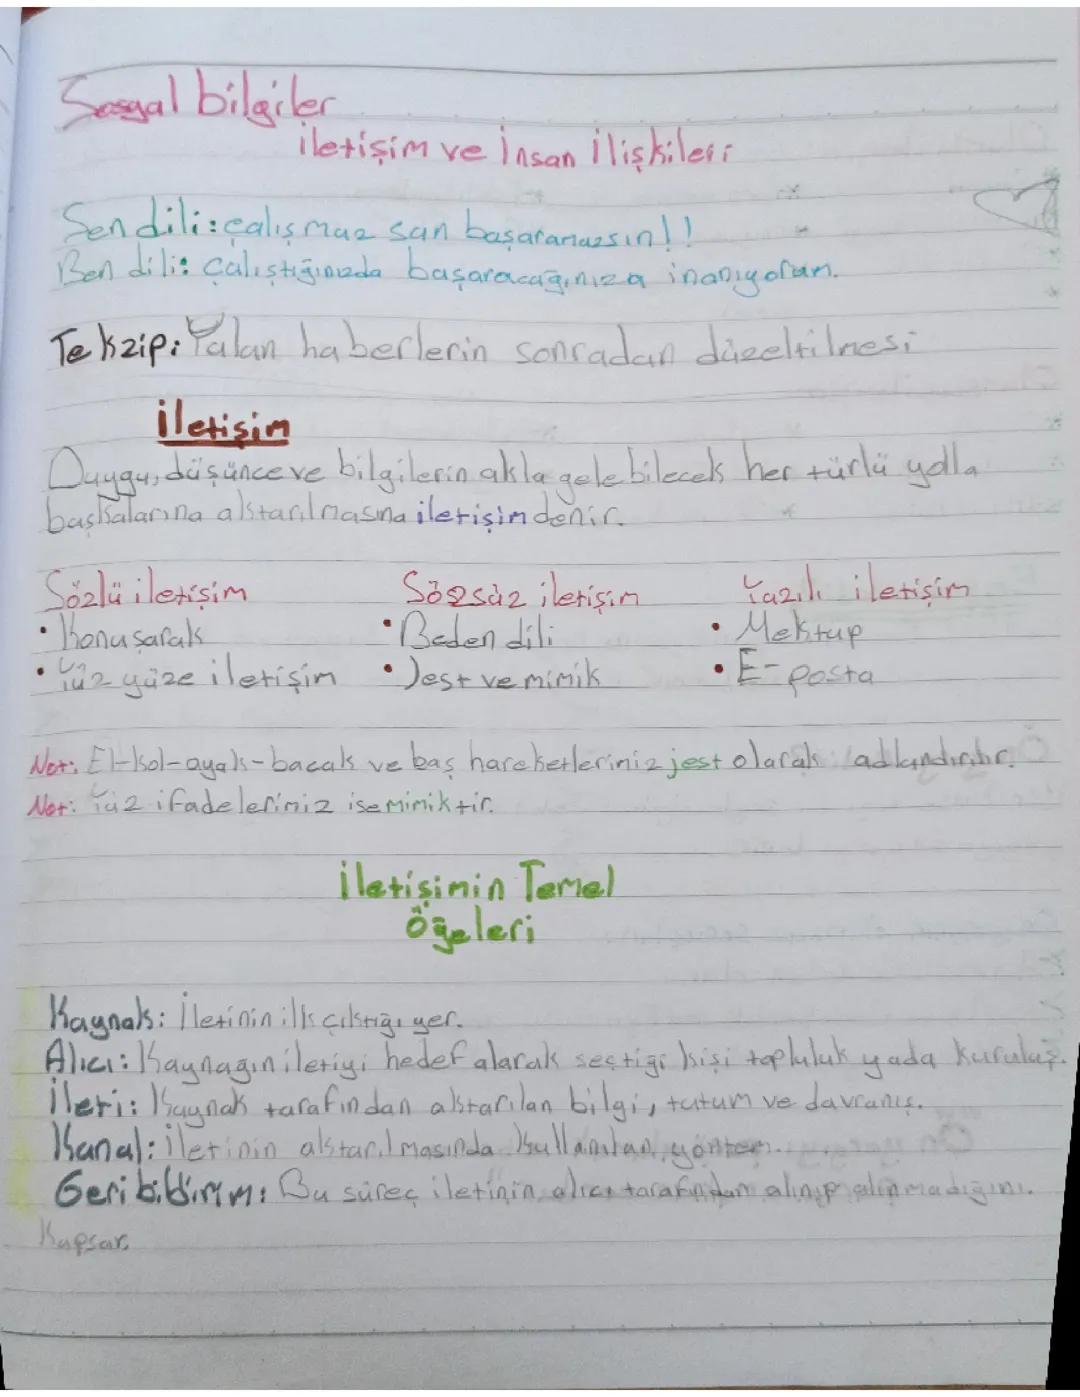 Sosyal bilgiler
İletişim ve İnsan İlişkileri
Sen dili: çalışmaz san başaramazsın!!
Ben dili: Çalıştığınızda başaracağınıza inanıyorum.
Tekzip: Yalan haberlerin sonradan düzeltilmesi
İletişim
Duygu, düşünce ve bilgilerin akla gelebilecek her türlü yolla
başkalarına aktarılmasına iletişim denir.
Sözlü iletişim Sözsüz iletişim Yazılı iletişim
• Konuşarak • Beden dili • Mektup
• Yüz yüze iletişim • Jest ve mimik • E-posta
Not: El-kol-ayak-bacak ve baş hareketlerimiz jest olarak adlandırılır.
Not: Yüz ifadelerimiz ise mimiktir.
İletişimin Temel
Öğeleri
Kaynak: İletinin ilk çıktığı yer.
Alıcı: Kaynağın iletiyi hedef alarak seçtiği kişi topluluk yada kuruluş.
İleti: Kaynak tarafından aktarılan bilgi, tutum ve davranış.
Kanal: İletinin aktarılmasında kullanılan yöntem.
Geri bildirim: Bu süreç iletinin alıcı tarafından alınıp alınmadığını.
Kapsar